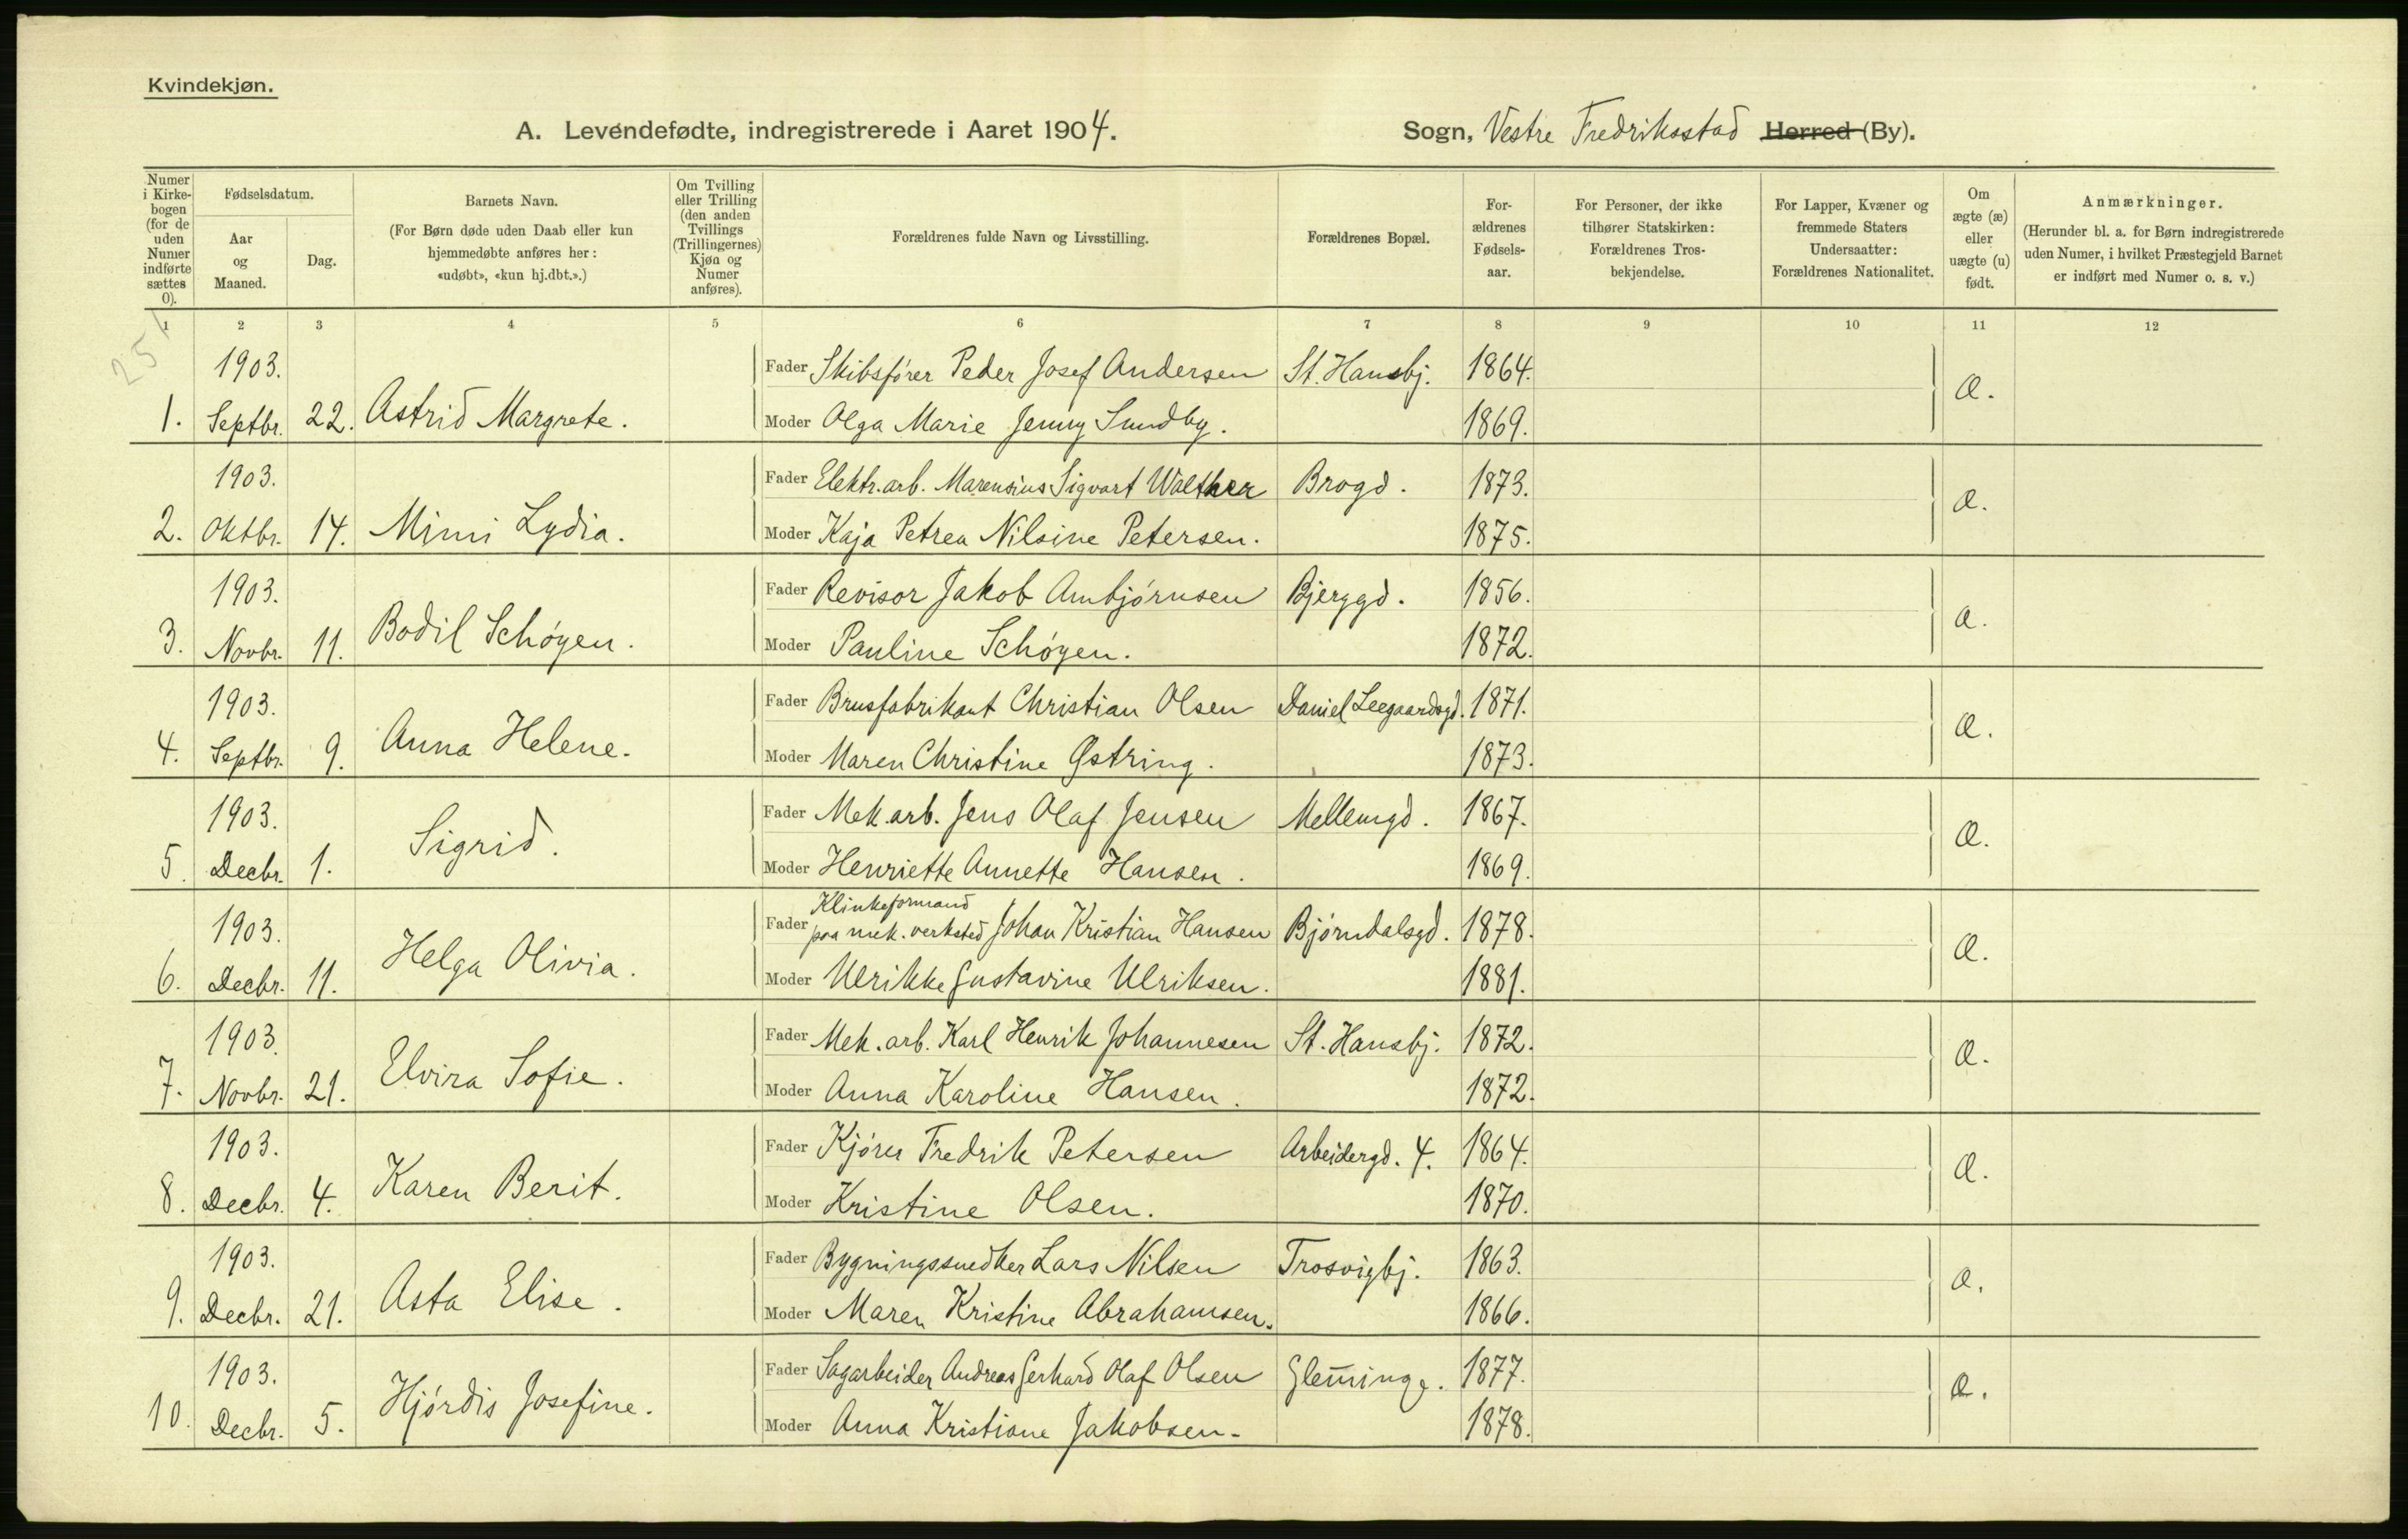 Kvindekjøn.
A. Levendefødte, indregistrerede i Aaret 1904. Sogn, Vestre Fredriksstad Herred (By).
Numer i Kirkebogen (for de uden Numer indførte sættes 0). | Fødselsdatum. Aar og Maaned. | Dag. | Barnets Navn. (For Børn døde uden Daab eller kun hjemmedøbte anføres her: «udøbt», «kun hj.dbt.».) | Om Tvilling eller Trilling (den anden Tvillings (Trillingernes) Kjøn og Numer anføres). | Forældrenes fulde Navn og Livsstilling. | Forældrenes Bopæl. | Forældrenes Fødselsaar. | For Personer, der ikke tilhører Statskirken: Forældrenes Trosbekjendelse. | For Lapper, Kvæner og fremmede Staters Undersaatter: Forældrenes Nationalitet. | Om ægte (æ) eller uægte (u) født. | Anmærkninger. (Herunder bl. a. for Børn indregistrerede uden Numer, i hvilket Præstegjeld Barnet er indført med Numer o. s. v.)
1 2 3 4 5 6 7 8 9 10 11 12
251
1903. Fader Skibsfører Peder Josef Andersen St. Hansbj. 1864. æ.
1. Septbr. 22. Astrid Margrete. Moder Olga Marie Jenny Sundby. 1869.
1903. Fader Elektr.arb. Marensius Sigvart Walther Brogd. 1873. æ.
2. Oktbr. 14. Mimi Lydia. Moder Kaja Petrea Nilsine Petersen. 1875.
1903. Fader Revisor Jakob Ambjørnsen Bjerggd. 1856. æ.
3. Novbr. 11. Bodil Schøyen. Moder Pauline Schøyen. 1872.
1903. Fader Brusfabrikant Christian Olsen Daniel Leegaardsgd. 1871. æ.
4. Septbr. 9. Anna Helene. Moder Maren Christine Østring. 1873.
1903. Fader Mek.arb. Jens Olaf Jensen Mellemgd. 1867. æ.
5. Decbr. 1. Sigrid. Moder Henriette Annette Hansen. 1869.
Klinkeformand
1903. Fader paa mek. verksted Johan Kristian Hansen Bjørndalsgd. 1878. æ.
6. Decbr. 11. Helga Olivia. Moder Ulrikke Gustavine Ulriksen. 1881.
1903. Fader Mek.arb. Karl Henrik Johannesen St. Hansbj. 1872. æ.
7. Novbr. 21. Elvira Sofie. Moder Anna Karoline Hansen. 1872.
1903. Fader Kjører Fredrik Petersen Arbeidergd. 4. 1864. æ.
8. Decbr. 4. Karen Berit. Moder Kristine Olsen. 1870.
1903. Fader Bygningssnedker Lars Nilsen Trosvigbj. 1863. æ.
9. Decbr. 21. Asta Elise. Moder Maren Kristine Abrahamsen. 1866.
1903. Fader Sagarbeider Andreas Gerhard Olaf Olsen Glem̄inge. 1877. æ.
10. Decbr. 5. Hjørdis Josefine. Moder Anna Kristiane Jakobsen. 1878.